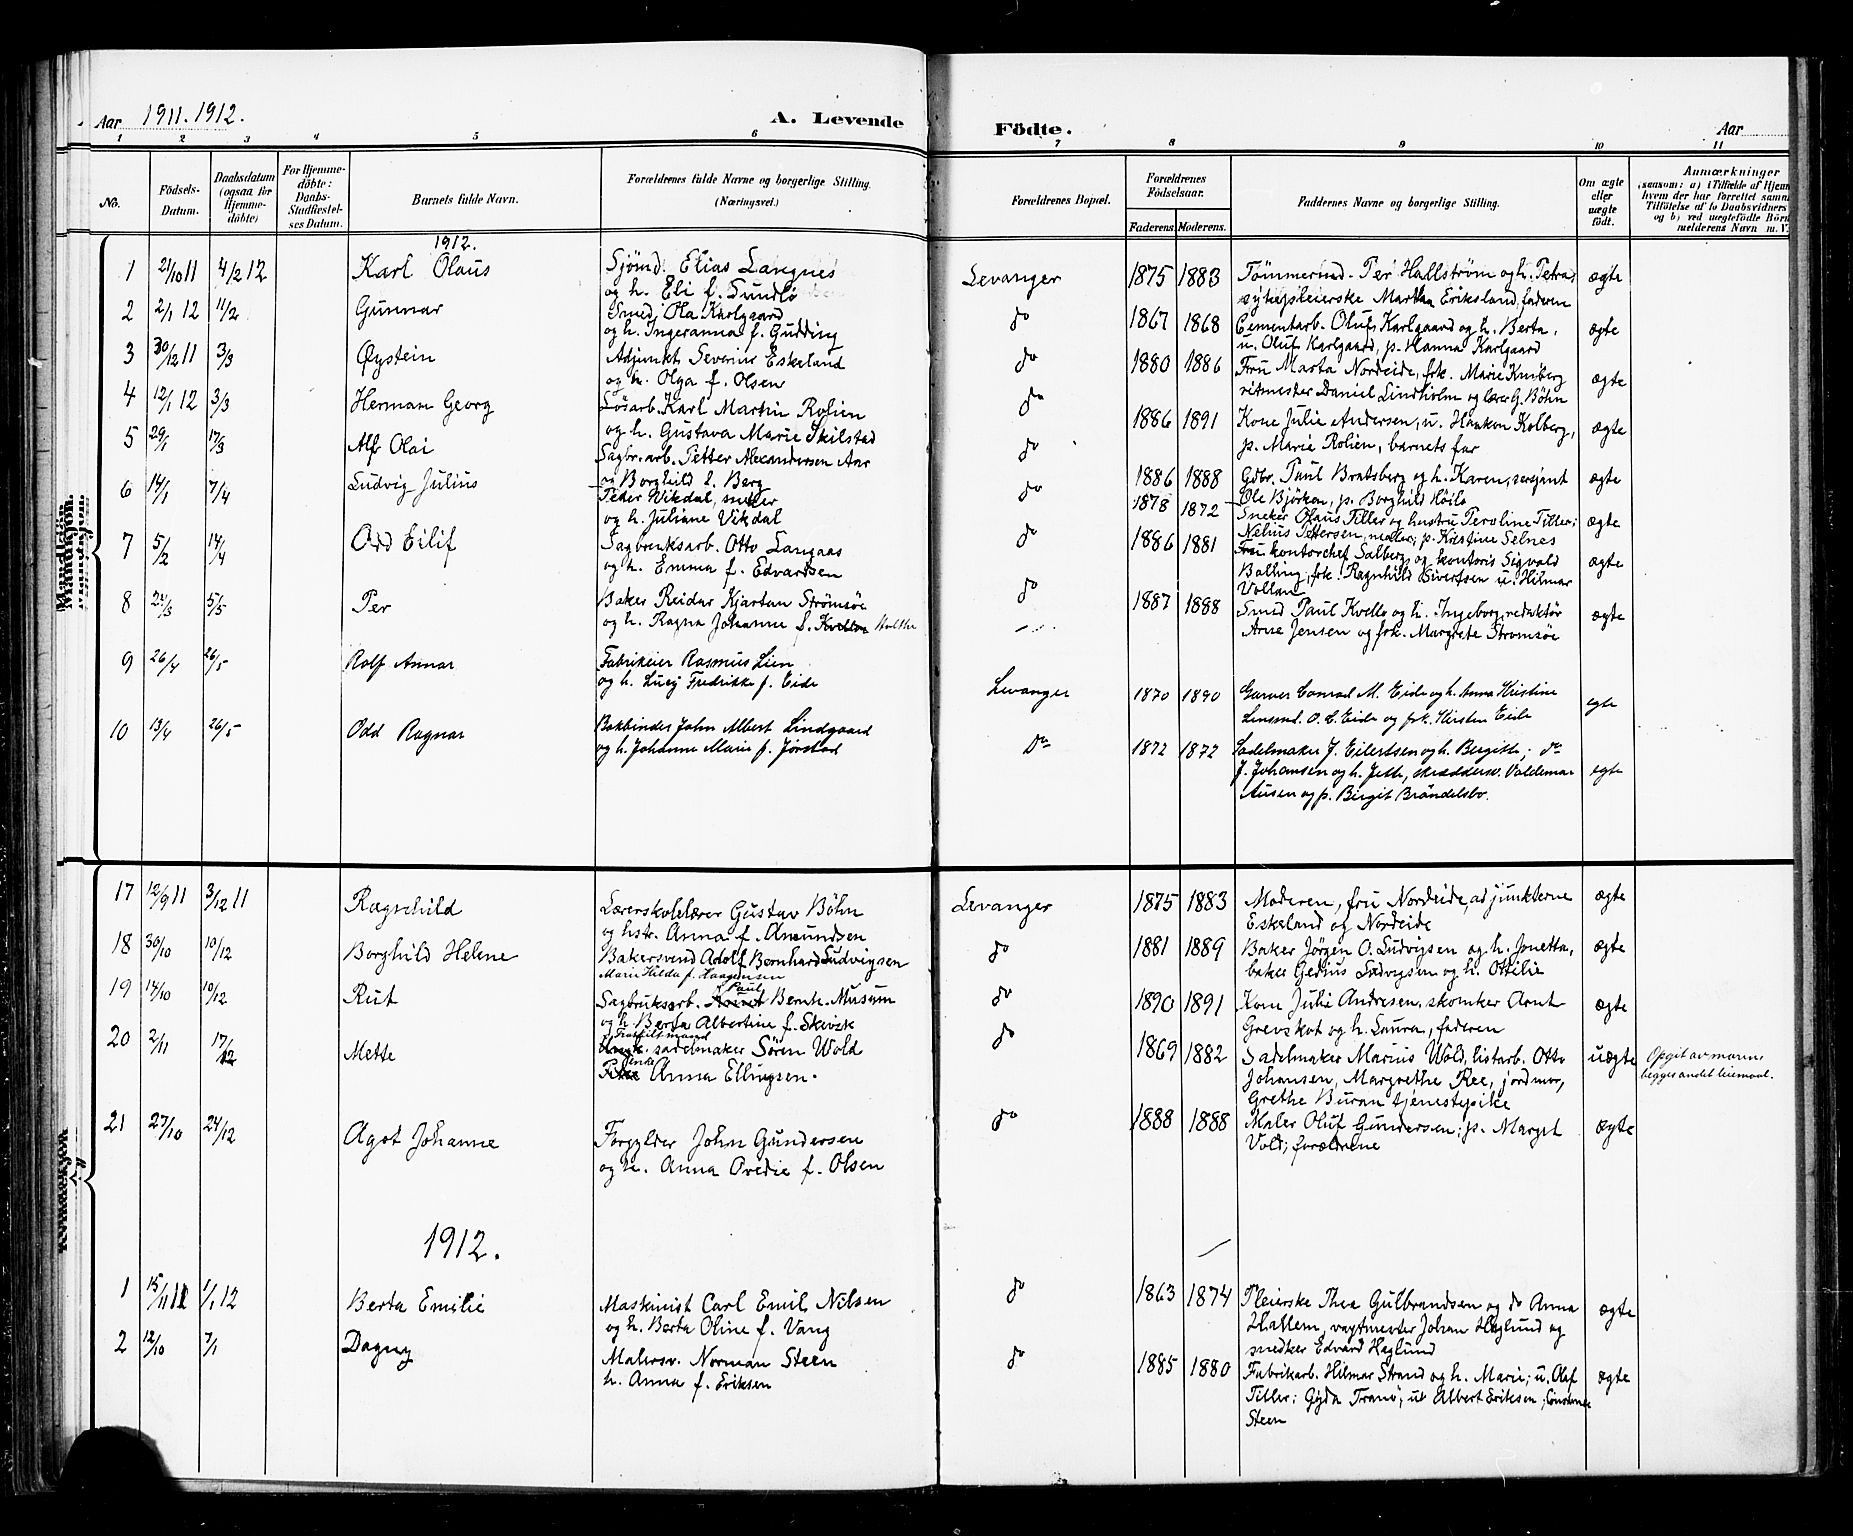 Aar 1911. 1912. A. Levende Födte. Aar
1 2 3 4 5 6 7 8 9 10 11
No. Födsels-Datum. Daabsdatum (ogsaa for Hjemme-döbte) For Hjemme-döbte: Daabs-Stadfæstel-ses Datum. Barnets fulde Navn. Forældrenes fulde Navne og borgerlige Stilling. (Næringsvei.) Forældrenes Bopæl. Forældrenes Födselsaar. Faderens. Moderens. Faddernes Navne og borgerlige Stilling. Om ægte eller uægte født. Anmærkninger
(saasom: a) i Tilfælde af Hjem
hvem der har forrettet samm
Tilföielse af to Daabsvidners
og b) ved uægtefödte Börn
melderens Navn m. V.
Mandkjön.
1912.
1 21/10 11 4/2 12 Karl Olaus Sjømd. Elias Langnes Levanger 1875 1883 Tømmermd. Per Hallström og h. Petra, ægte
og h. Eli f. Sundlø sykepleierske Martha Eriksland, faderen
2 2/1 12 11/2 Gunnar Smed Ola Karlgaard do 1867 1868 Cementarb. Oluf Karlgaard og h. Berta, ægte
og h. Ingeranna f. Gudding u. Oluf Karlgaard, p. Hanna Karlgaard
3 30/12 11 3/3 Øystein Adjunkt Severin Eskeland do 1880 1886 Fru Marta Nordeide, frk. Marie Kniberg ægte
og h. Olga f. Olsen ritmester Daniel Lindholm og lærer G. Bøhn
4 12/1 12 3/3 Herman Georg Løsarb. Karl Martin Rolien do 1886 1891 Kone Julie Andersen, u. Haakon Kolberg, ægte
og h. Gustava Marie Skilstad p. Marie Rolien, barnets far
5 29/1 17/3 Alf Olai Sagbr.arb. Petter Alexandersen Aar do 1886 1888 Gdbr. Paul Bratsberg og h. Karen, serejant ægte
og Borghild f. Berg Ole Bjørkan, p. Borghild Höilo
6 14/1 7/4 Ludvig Julius Peder Vikdal, sneker do 1878 1872 Sneker Olaus Tiller og hustru Peroline Tiller; ægte
og h. Juliane Vikdal Nelius Pettersen, møller; p. Kristine Selnes
7 5/2 14/4 Odd Eilif Sagbruksarb. Otto Langaas do 1886 1881 Fru kontorchef Salberg og kontoris Sigvald ægte
og h. Emma f. Edvardsen Balling, frk. Ragnhild Sivertsen u. Hilmar
Vollan
8 24/3 5/5 Per Baker Reidar Kjartan Strømsøe do 1887 1888 Smed Paul Kvello og h. Ingeborg, redaktør ægte
og h. Ragna Johanne f. Holthe Arne Jensen og frk. Margrete Stromsøe
9 26/4 26/5 Rolf Annar Fabrikeier Rasmus Lien Levanger 1870 1890 Garver Conrad M. Eide og h. Anna Kristine egte
og h. Lucy Fredrikke f. Eide Lensmd. O. C. Eide og frk. Kirsten Eide
10 13/4 26/5 Odd Ragnar Bokbinder John Albert Lindgaard Do 1872 1872 Sadelmaker J. Eilertsen og h. Bergitte; do egte
og h. Johanne Marie f. Jørstad J. Johansen og h. Jette, skræddersv. Valdemar
Ausen og p. Birgit Brändelsbo.
Kvindekjön
17 12/9 11 3/12 11 Ragnhild Lærerskolelærer Gustav Bøhn Levanger 1875 1883 Moderen, fru Nordeide, adjunkterne ægte
og hstr. Anna f. Amundsen Eskeland og Nordeide
18 30/10 10/12 Borghild Helene Bakersvend Adolf Bernhard Ludvigsen do 1881 1889 Baker Jørgen O. Ludvigsen og h. Jonetta, ægte
Marie Hilda f. Haagensen baker Gerius Ludvigsen og h. Ottilie
19 14/10 10/12 Rut Sagbruksarb. Paul Bernh. Musum do 1890 1891 Kone Julie Andresen, skomker Arnt ægte
og h. Berta Albertine f. Skevik Grevskot og h. Laura, faderen
20 2/11 17/12 Mette Fraskilt mand sadelmaker Sören Wold do 1869 1882 Sadelmaker Marius Wold, listarb. Otto uægte Opgit av moren
Pike Anna Ellingsen. Johansen, Margrethe Ree, jordmor, begges andet leiemaal.
Grethe Buran tjenestepike
21 27/10 24/12 Agot Johanne Forgylder John Gundersen do 1888 1888 Maler Oluf Gundersen; p. Margit ægte
og h. Anna Ovedie f. Olsen Vold; forældrene
1912.
1 15/11 11 1/1 12 Berta Emilie Maskinist Carl Emil Nilsen do 1863 1874 Pleierske Thea Gulbrandsen og do Anna ægte
og h. Berta Oline f. Vang Hallem, vagtmester Johan Haglund og
snedker Edvard Haglund
2 12/10 7/1 Dagny Malersv. Norman Steen do 1885 1880 Fabrikarb. Hilmar Strand og h. Marie; u. Olaf ægte
h. Anna f. Eriksen Tiller; Gyda Tranö, u. Albert Eriksen; Constance
Steen